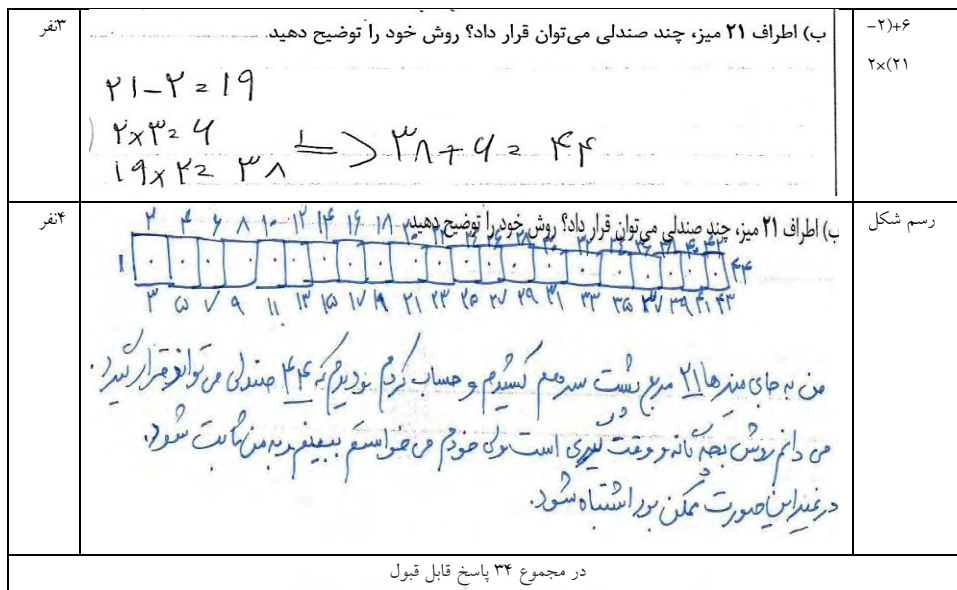 ۲−)+۶
۲×(۲۱
ب) اطراف ۲۱ میز، چند صندلی می‌توان قرار داد؟ روش خود را توضیح دهید.
۳نفر
۲۱-۲=۱۹
۲×۳=۶
۱۹×۲=۳۸ => ۳۸+۶=۴۴
رسم شکل
ب) اطراف ۲۱ میز، چند صندلی می‌توان قرار داد؟ روش خود را توضیح دهید.
۴نفر
۲ ۴ ۶ ۸ ۱۰ ۱۲ ۱۴ ۱۶ ۱۸ ۲۰ ۲۲ ۲۴ ۲۶ ۲۸ ۳۰ ۳۲ ۳۴ ۳۶ ۳۸ ۴۰ ۴۲
۱ ۴۴
۳ ۵ ۷ ۹ ۱۱ ۱۳ ۱۵ ۱۷ ۱۹ ۲۱ ۲۳ ۲۵ ۲۷ ۲۹ ۳۱ ۳۳ ۳۵ ۳۷ ۳۹ ۴۱ ۴۳
من به جای میزها ۲۱ مربع پشت سر هم کشیدم و حساب کردم و دیدم که ۴۴ صندلی می‌توان قرار گیرد.
می دانم روش بچه گانه و وقت گیری است ولی خودم می خواستم ببینم و به من ثابت شود.
در غیر این صورت ممکن بود اشتباه شود.
در مجموع ۳۴ پاسخ قابل قبول